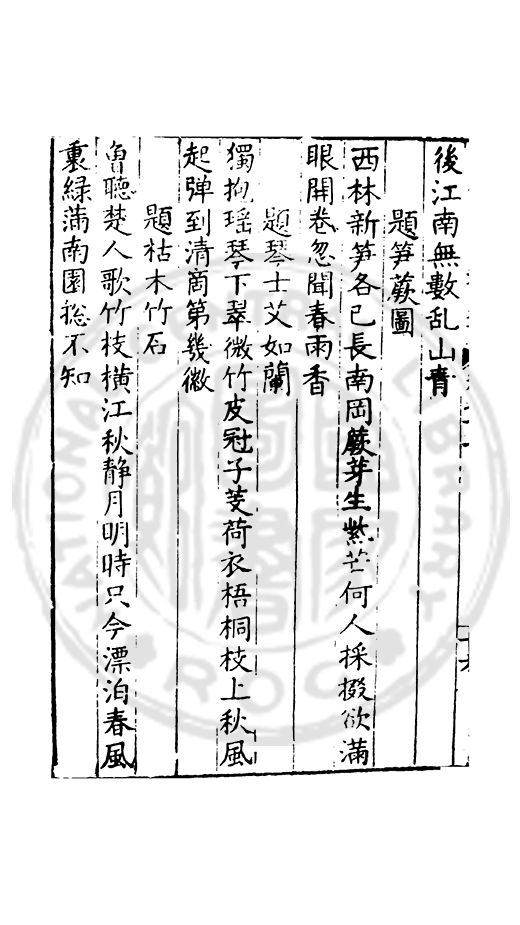 後江南無數乱山青
題笋蕨圖
西林新笋各已長南岡蕨芽生紫芒何人採掇欲滿
眼開卷忽聞春雨香
題琴士艾如蘭
獨抱瑶琴下翠微竹皮冠子芰荷衣梧桐枝上秋風
起弹到清商第幾徽
題枯木竹石
曾聽楚人歌竹枝橫江秋静月明時只今漂泊春風
裏綠蒲南園捴不知
NATIONAL CENTRAL LIBRARY
R O C